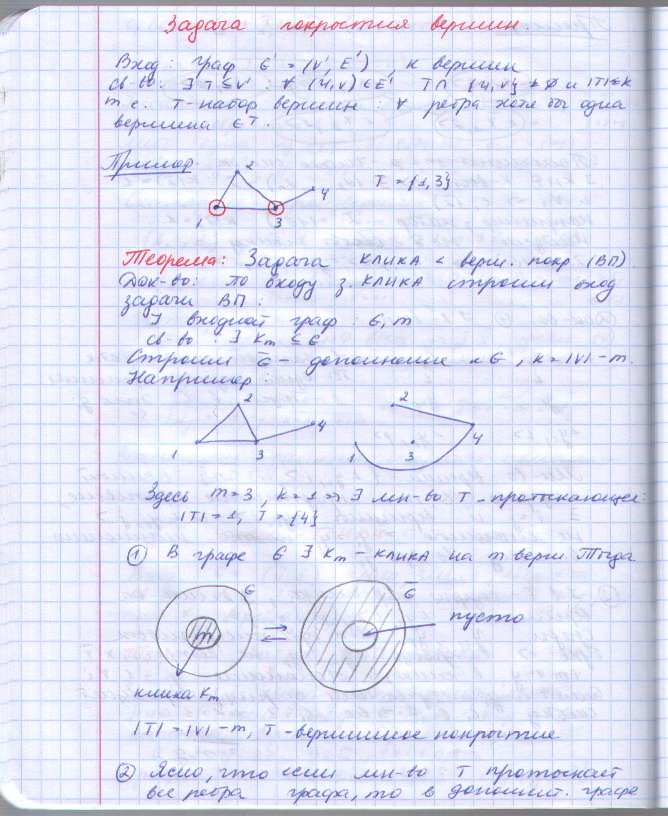 Задача покрытия вершин.
Вход: граф G' = (V', E') , k вершин
Св-во: ∃ T ⊆ V' : ∀ (u,v) ∈ E' T ∩ {u,v} ≠ ∅ и |T| ≤ k
т.е. T-набор вершин : ∀ ребра хотя бы одна
вершина ∈ T.
Пример.
2
4
T = {1,3}
1
3
Теорема: Задача КЛИКА < верш. покр (ВП).
Док-во: по входу з. КЛИКА строим вход
задачи ВП.
] входной граф : G, m
св-во : ∃ Km ⊆ G
Строим G̅ - дополнение к G , k = |V| - m.
Например:
2
4
1
3
2
4
1
3
Здесь m=3 , k=1 => ∃ мн-во T - протыкающее:
|T|=1, T={4}
① В графе G ∃ Km - клика на m верш. Тогда
G
G̅
m
пусто
клика Km
|T|=|V|-m, T - вершинное покрытие
② Ясно, что если мн-во T протыкает
все ребра графа, то в дополнит. графе